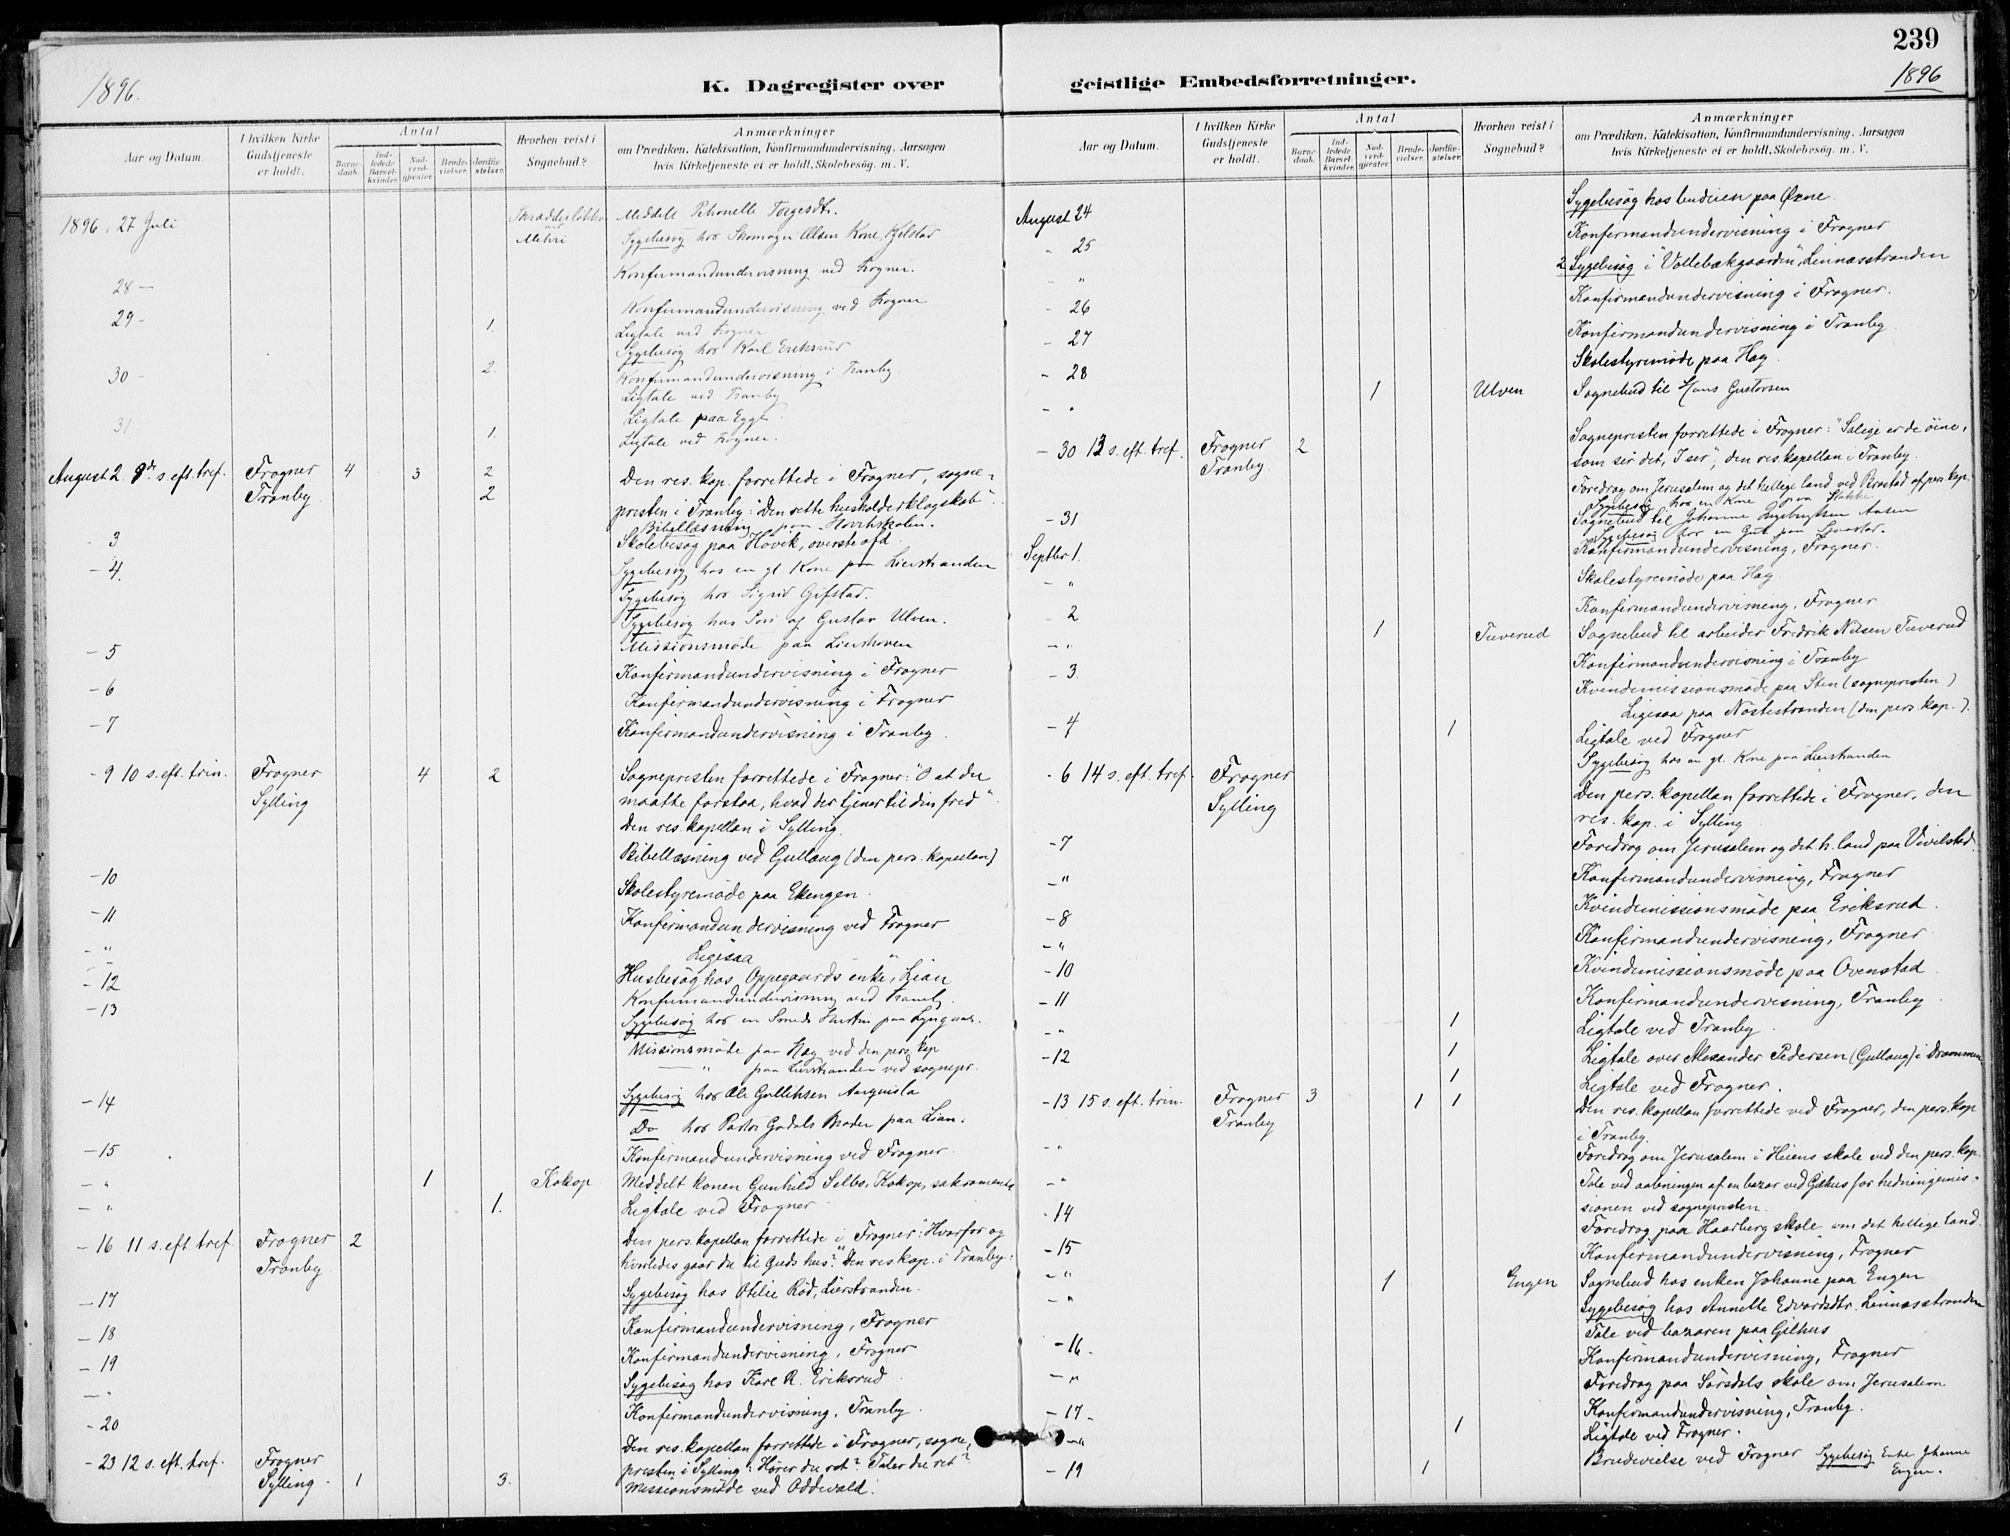 239
1896.
K. Dagregister over geistlige Embedsforretninger.
1896
Aar og Datum.
I hvilken Kirke Gudstjeneste er holdt.
Antal
Barne-daab.
Ind-ledede Barsel-kvinder.
Nad-verd-gjester.
Brude-vielser.
Jordfæ-stelser.
Hvorhen reist i Sognebud?
Anmærkninger
om Prædiken, Katekisation, Konfirmandundervisning. Aarsagen
hvis Kirketjeneste ei er holdt. Skolebesøg. m. V.
1896, 27 Juli Meddelt Petronelle Torgesdtr.
Sygebesøg hos Skomager Olsen Kone, Kjelstad
Konfirmandundervisning ved Frogner.
28 —
29 - Konfirmandundervisning ved Frogner
1. Ligtale ved Frogner
Sygebesøg hos Karl Eriksrud
30 - 2. Konfirmandundervisning i Tranby.
Ligtale ved Tranby
31 Ligtale paa Egge
1. Ligtale ved Frogner.
August 2. 9de s. eft. tref. Frogner 4 3 2 Den res. kap. forrettede i Frogner, sogne-
Tranby 2 presten i Tranby: "Den rette husholderklogskab".
Bibellæsning paa Hovikskolen.
- 3 Skolebesøg paa Hovik, øverste afd.
- 4. Sygebesøg hos en gl. Kone paa Lierstranden
Sygebesøg hos Sigrid Gifstad.
Sygebesøg hos Søn af Gustav Ulven.
Missionsmøde paa Lierskoven
- 5 Konfirmandundervisning i Frogner
- 6 Konfirmandundervisning i Frogner
- 7 Konfirmandundervisning i Tranby.
- 9 10 s. eft. trin. Frogner 4 2 Sognepresten forrettede i Frogner: "O at du
Sylling maatte forstaa, hvad der tjener til din fred".
Den res. kapellan i Sylling.
Bibellæsning ved Gullaug (den pers. kapellan)
- 10 Skolestyremøde paa Ekengen.
- 11 Konfirmandundervisning ved Frogner
- " Ligesaa
- 12 Husbesøg hos Oppegaards enke, Lian
- 13 Konfirmandundervisning ved Tranby.
Sygebesøg hos en Smeds Hustru paa Lyngaas.
Missionsmøde paa Hæg ved den pers. kap
— " paa Lierstranden ved sognepr.
- 14 Sygebesøg hos Ole Gulliksen
Do hos Pastor Gadals Moder paa Lian.
- 15 Konfirmandundervisning ved Frogner.
- " 1 Kokop Meddelt konen Gunhild Selbo, Kokop, sakramente
" 1. Ligtale ved Frogner
- 16 11 s. eft. tref. Frogner 2 Den pers. kapellan forrettede i Frogner: "Hvorfor og
Tranby hvorledes gaar du til Guds hus?" Den res kap. i Tranby:
- 17 Sygebesøg hos Otilie Rød, Lierstranden.
- 18 Konfirmandundervisning, Frogner
- 19 Konfirmandundervisning, Frogner
- " Sygebesøg hos Kare R. Eriksrud
- 20 Konfirmandundervisning, Tranby.
- 23 12 s. eft. tref. Frogner Den res. kapellan forrettede i Frogner, sogne-
Sylling. 1 3. presten i Sylling: Hører du ret? Taler du ret?
Missionsmøde ved Oddevald.
Aar og Datum.
I hvilken Kirke Gudstjeneste er holdt.
Antal
Barne-daab.
Ind-ledede Barsel-kvinder.
Nad-verd-gjester.
Brude-vielser.
Jordfæ-stelser.
Hvorhen reist i Sognebud?
Anmærkninger
om Prædiken, Katekisation, Konfirmandundervisning. Aarsagen
hvis Kirketjeneste ei er holdt. Skolebesøg. m. V.
August 24 Sygebesøg hos budeien paa Øxne
- 25 Konfirmandundervisning i Frogner
- " 2 Sygebesøg i Vollebækgaarden, Linnæsstranden
- 26 Konfirmandundervisning i Frogner.
- 27 Konfirmandundervisning i Tranby.
- 28 Skolestyremøde paa Hæg.
- " 1 Ulven Sognebud til Hans Gustavsen
- 30 13 s. eft. tref. Frogner 2 Sognepresten forrettede i Frogner: "Salige er de øine,
Tranby. som ser det, I ser", den res. kapellan i Tranby.
Foredrag om Jerusalem og det hellige land ved af pers. kap.
Sygebesøg hos en Kone paa
- 31 Sognebud til Johanne
Sygebesøg hos en Gut paa
Septbr 1. Konfirmandundervisning, Frogner.
- " Skolestyremøde paa Hæg.
2 Konfirmandundervisning, Frogner
- " 1 Tuverud Sognebud til arbeider Fredrik Nilsen Tuverud
- 3 Konfirmandundervisning i Tranby
Kvindemissionsmøde paa Sten (sognepresten)
Ligesaa paa Nøstestranden (den pers. kap.).
- 4 1 Ligtale ved Frogner
Sygebesøg hos en gl. Kone paa Lierstranden
- 6 14 s. eft. tref. Frogner Den pers. kapellan forrettede i Frogner, den
Sylling res. kap. i Sylling
- 7 Foredrag om Jerusalem og det h. land paa Vivelstad.
- " Konfirmandundervisning, Frogner
- 8 Kvindemissionsmøde paa Eriksrud.
- " Konfirmandundervisning, Frogner
- 10 Kvindemissionsmøde paa Ovenstad
- 11 Konfirmandundervisning, Tranby.
- " 1 Ligtale ved Tranby
- 12 1 Ligtale over Alexander Pedersen (Gullaug) i Drammen
1 Ligtale ved Frogner.
- 13 15 s. eft. trin. Frogner 3 1 1 Den res. kapellan forrettede ved Frogner, den pers. kap
Tranby i Tranby.
- " Foredrag om Jerusalem i Heiens skole ved den pers. kap.
- " Tale ved aabningen af en bazar ved Gilhus for hedningemis-
sionen ved sognepresten.
- 14 Foredrag paa Haarberg skole om det hellige land.
- 15 Konfirmandundervisning, Frogner
- " 1 Engen Sognebud hos enken Johanne paa Engen
- " Sygebesøg hos Annette Edvardsdtr. Linnæsstranden
Tale ved bazaren paa Gilhus
- 16. Konfirmandundervisning, Frogner
- " Foredrag paa Sørsdals skole om Jerusalem
- 17. Konfirmandundervisning, Tranby.
- " 1 Ligtale ved Frogner.
- 19 1 Brudevielse ved Frogner Sygebesøg Enke Johanne
Engen.